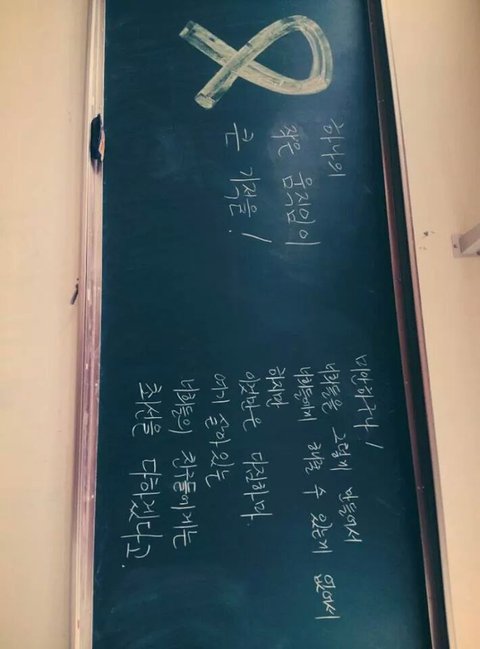 하나의
작은 움직임이
큰 기적을!
미안하구나!
너희들을 그렇게 만들어서
너희들에게 해줄 수 있는게 없어서
하지만
이것만은 다짐하마.
여기 살아있는
너희들의 친구들에게는
최선을 다하겠다고.